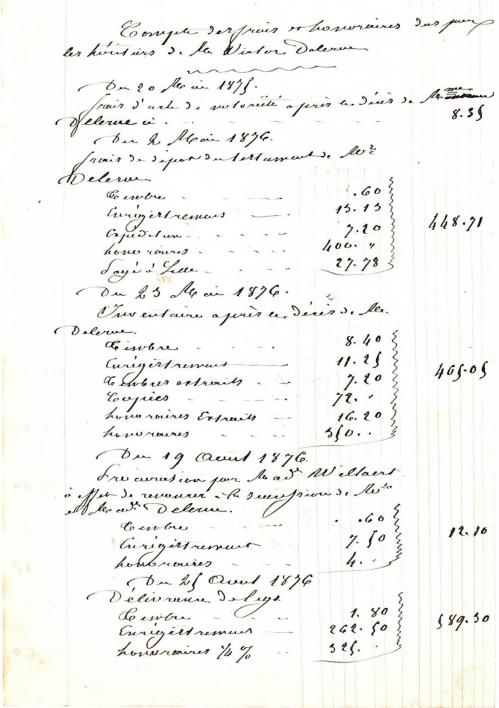 Compte des frais et honoraires dus par
les héritiers de Mr Victor Delerue
Du 20 Mai 1875.
frais d'acte de notoriété après le décès de Mme
Delerue à 8.35
Du 2 Mai 1876.
frais de dépot du testament de Mr
Delerue
Timbre .60
Enregistrement 13.13
Expédition 7.20
honoraires 400. "
Payé à Lille 27.78
448.71
Du 23 Mai 1876.
Inventaire après le décès de Mr
Delerue.
Timbre 8.40
Enregistrement 11.25
Timbres extraits 7.20
Copies 72. "
honoraires Extraits 16.20
honoraires 350. .
465.05
Du 19 Aout 1876.
Procuration par Mad. Willaert
à effet de renoncer à la succession de Mr
et Mad. Delerue.
Timbre .60
Enregistrement 7.50
honoraires 4. .
12.10
Du 25 Aout 1876
Délivrance de legs
Timbre 1.80
Enregistrement 262.50
honoraires 1/4 % 325. .
589.30